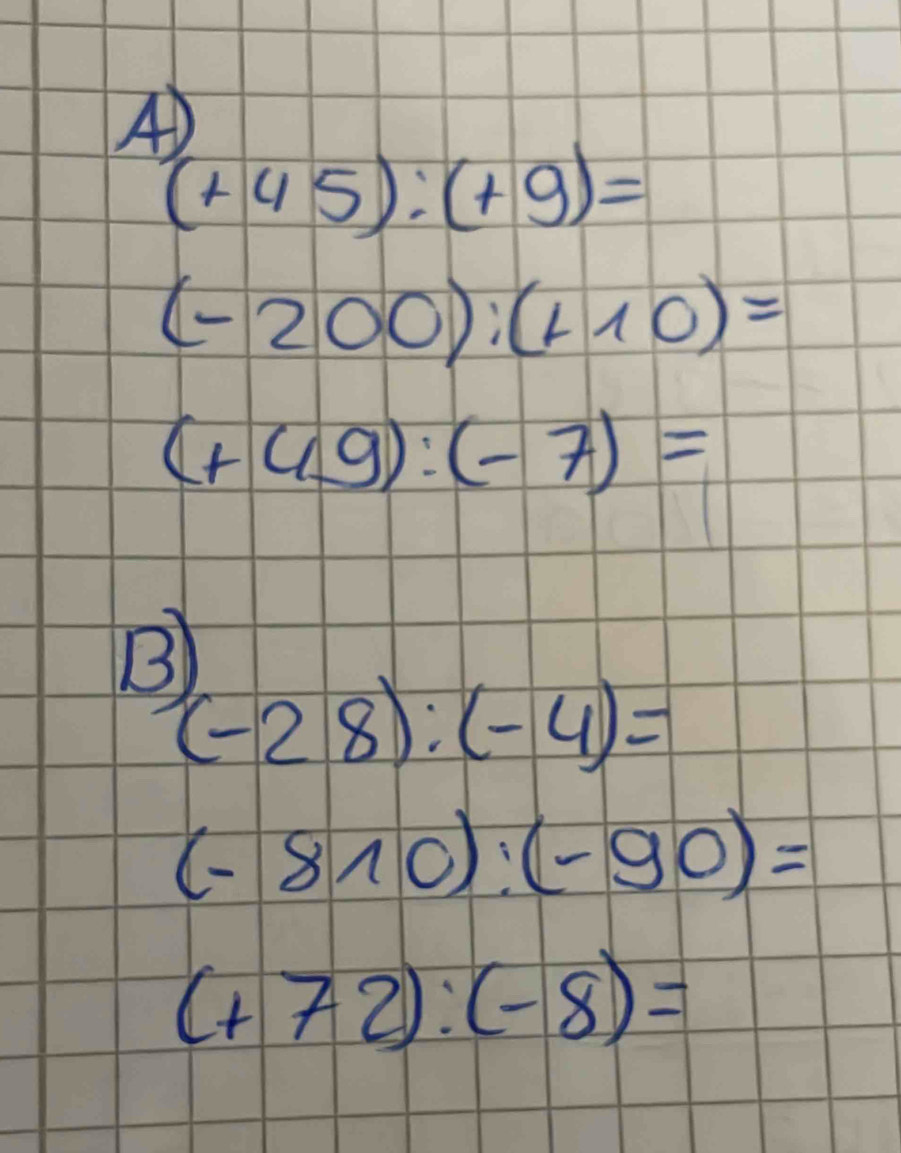 A)
(+45):(+9)=
(-200):(+10)=
(+49):(-7)=
B)
(-28):(-4)=
(-810):(-90)=
(+72):(-8)=